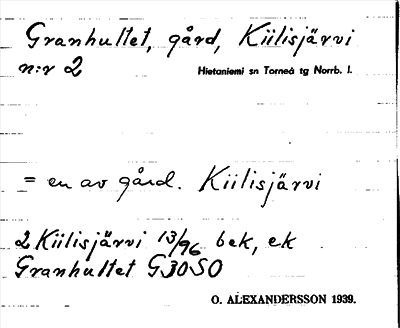 Granhultet, gård, Kiilisjärvi
n:r 2
Hietaniemi sn Torneå tg Norrb. l.
= en av gård. Kiilisjärvi
2 Kiilisjärvi 13/96 bek, ek
Granhultet G30SO
O. ALEXANDERSSON 1939.